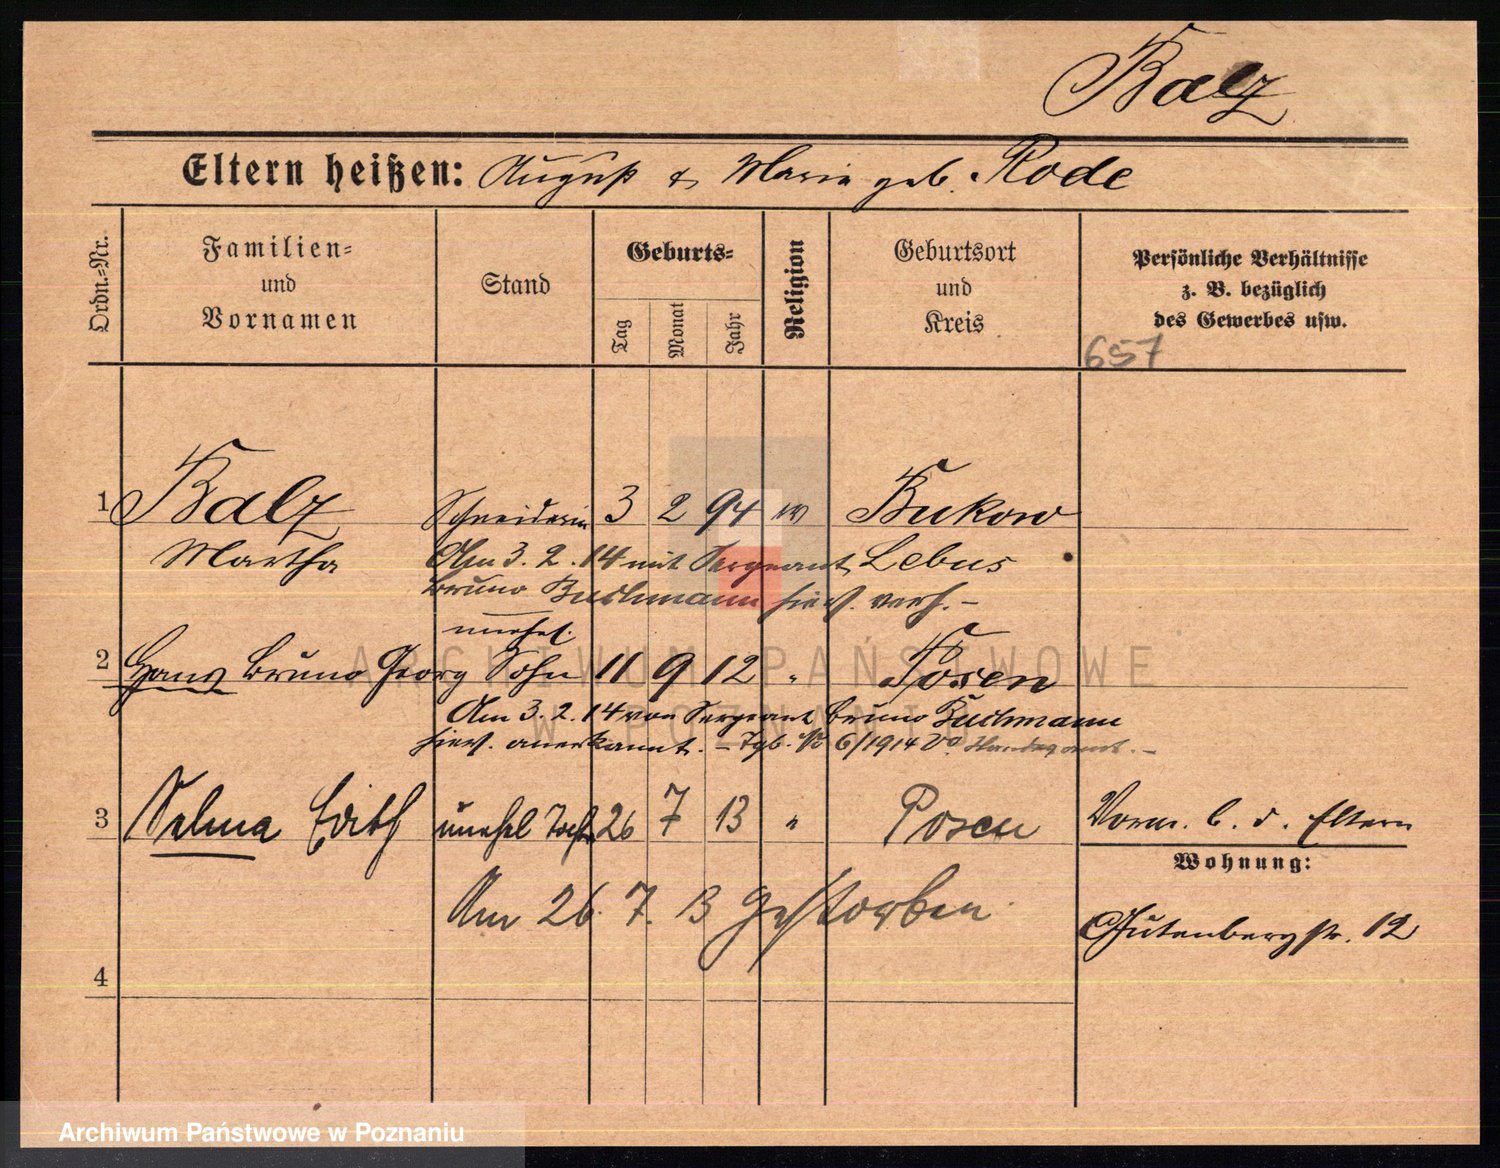 Balz
Eltern heißen: August & Marie geb. Rode
Ordn.-Nr.
Familien- und Vornamen
Stand
Geburts-
Tag
Monat
Jahr
Religion
Geburtsort und Kreis
Persönliche Verhältnisse z. B. bezüglich des Gewerbes usw.
657
1 Balz Schneiderin 3 2 94 Bukow
Martha Am 3. 2. 14 mit Sergeant Lebus
Bruno Buchmann hies. verh. –
unehel.
2 Hans Bruno Georg Sohn 11 9 12 " Posen
Am 3. 2. 14 von Sergeant Bruno Buchmann
hies. anerkannt. – Tgb. № 6/1914 Vo Standesamt. –
3 Selma Edith unehel Tocht 26 7 13 " Posen Vorm. b. d. Eltern
Wohnung:
Am 26. 7. 13 gestorben
Gutenbergstr. 12
4
ARCHIWUM PAŃSTWOWE
W POZNANIU
Archiwum Państwowe w Poznaniu